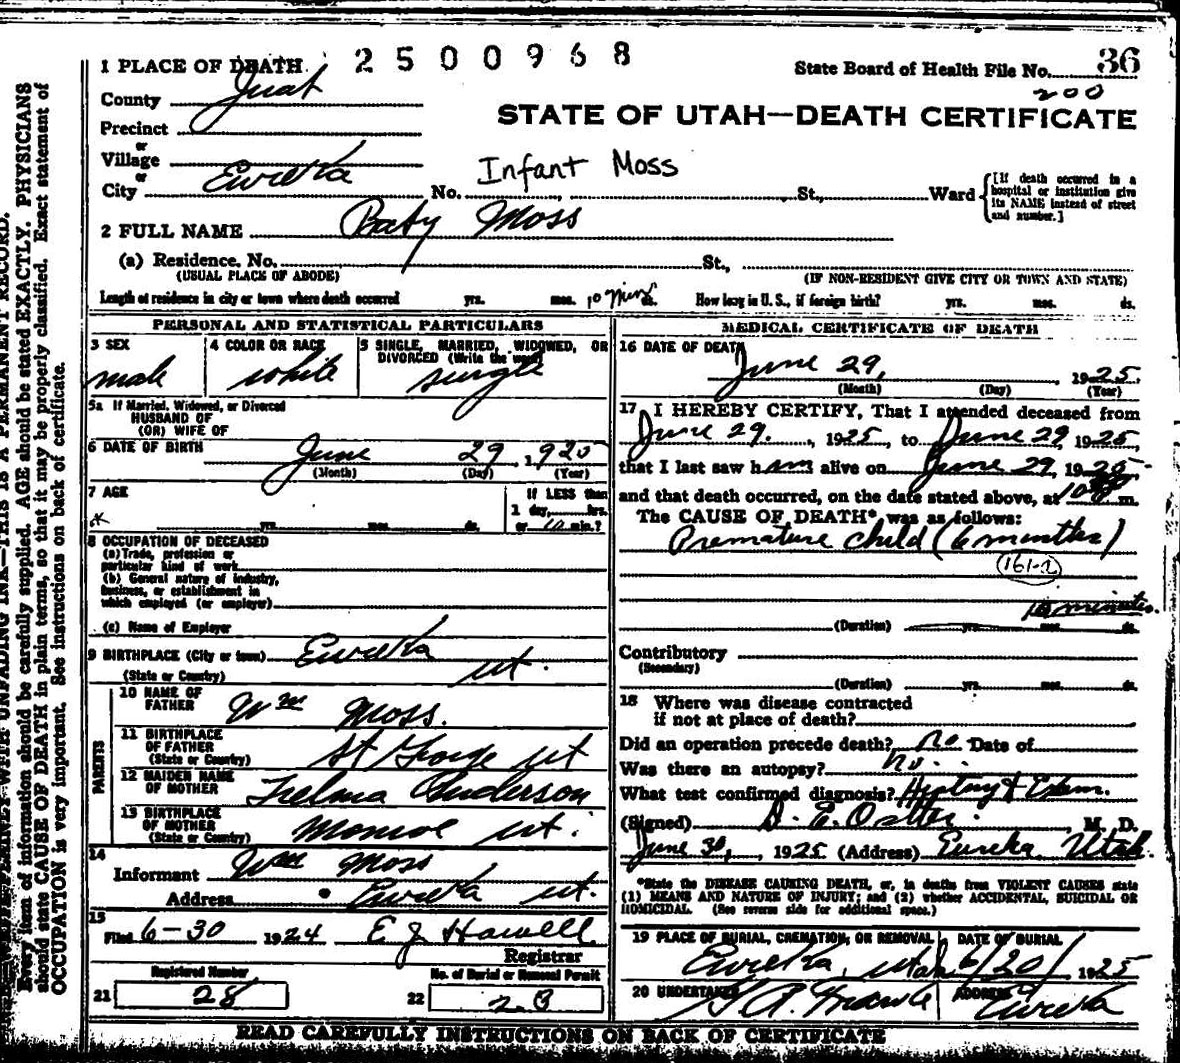 2500968
36
1 PLACE OF DEATH
State Board of Health File No.
200
County Juab
STATE OF UTAH—DEATH CERTIFICATE
Precinct
or
Village
or
City Eureka No. Infant Moss St., Ward
[If death occurred in a hospital or institution give its NAME instead of street and number.]
2 FULL NAME Baby Moss
(a) Residence. No. St.,
(USUAL PLACE OF ABODE) (IF NON-RESIDENT GIVE CITY OR TOWN AND STATE)
Length of residence in city or town where death occurred yrs. mos. 10 mins ds. How long in U. S., if foreign birth? yrs. mos. ds.
PERSONAL AND STATISTICAL PARTICULARS
3 SEX 4 COLOR OR RACE 5 SINGLE, MARRIED, WIDOWED, OR
DIVORCED (Write the word)
male white single
5a If Married, Widowed, or Divorced
HUSBAND OF
(OR) WIFE OF
6 DATE OF BIRTH June 29, 1925
(Month) (Day) (Year)
7 AGE If LESS than
1 day, hrs.
yrs. mos. ds. or 10 min.?
8 OCCUPATION OF DECEASED
(a) Trade, profession or
particular kind of work
(b) General nature of industry,
business, or establishment in
which employed (or employer)
(c) Name of Employer
9 BIRTHPLACE (City or town) Eureka
(State or Country) Ut.
PARENTS
10 NAME OF
FATHER Wm Moss.
11 BIRTHPLACE
OF FATHER
(State or Country) St George Ut
12 MAIDEN NAME
OF MOTHER Thelma Anderson
13 BIRTHPLACE
OF MOTHER
(State or Country) Monroe Ut.
14
Informant Wm Moss
Address Eureka Ut.
15
Filed 6-30 1924 E J Howell.
Registrar
Registered Number No. of Burial or Removal Permit
21 28 22 28
MEDICAL CERTIFICATE OF DEATH
16 DATE OF DEATH
June 29, 1925.
(Month) (Day) (Year)
17 I HEREBY CERTIFY, That I attended deceased from
June 29., 1925, to June 29 1925,
that I last saw him alive on June 29, 1925
and that death occurred, on the date stated above, at m.
The CAUSE OF DEATH* was as follows:
Premature child (6 months)
161-2
10 minutes.
(Duration) yrs. mos. ds.
Contributory
(Secondary)
(Duration) yrs. mos. ds.
18 Where was disease contracted
if not at place of death?
Did an operation precede death? No Date of
Was there an autopsy? No.
What test confirmed diagnosis? History & Exam.
(Signed) D. E. M. D.
June 30, 1925 (Address) Eureka, Utah.
*State the DISEASE CAUSING DEATH, or, in deaths from VIOLENT CAUSES state
(1) MEANS AND NATURE OF INJURY; and (2) whether ACCIDENTAL, SUICIDAL OR
HOMICIDAL. (See reverse side for additional space.)
19 PLACE OF BURIAL, CREMATION, OR REMOVAL DATE OF BURIAL
Eureka, Utah 6/20/ 1925
20 UNDERTAKER ADDRESS
Eureka
READ CAREFULLY INSTRUCTIONS ON BACK OF CERTIFICATE
UNFADING INK—THIS IS A PERMANENT RECORD.
Every item of information should be carefully supplied. AGE should be stated EXACTLY. PHYSICIANS
should state CAUSE OF DEATH in plain terms, so that it may be properly classified. Exact statement of
OCCUPATION is very important. See instructions on back of certificate.